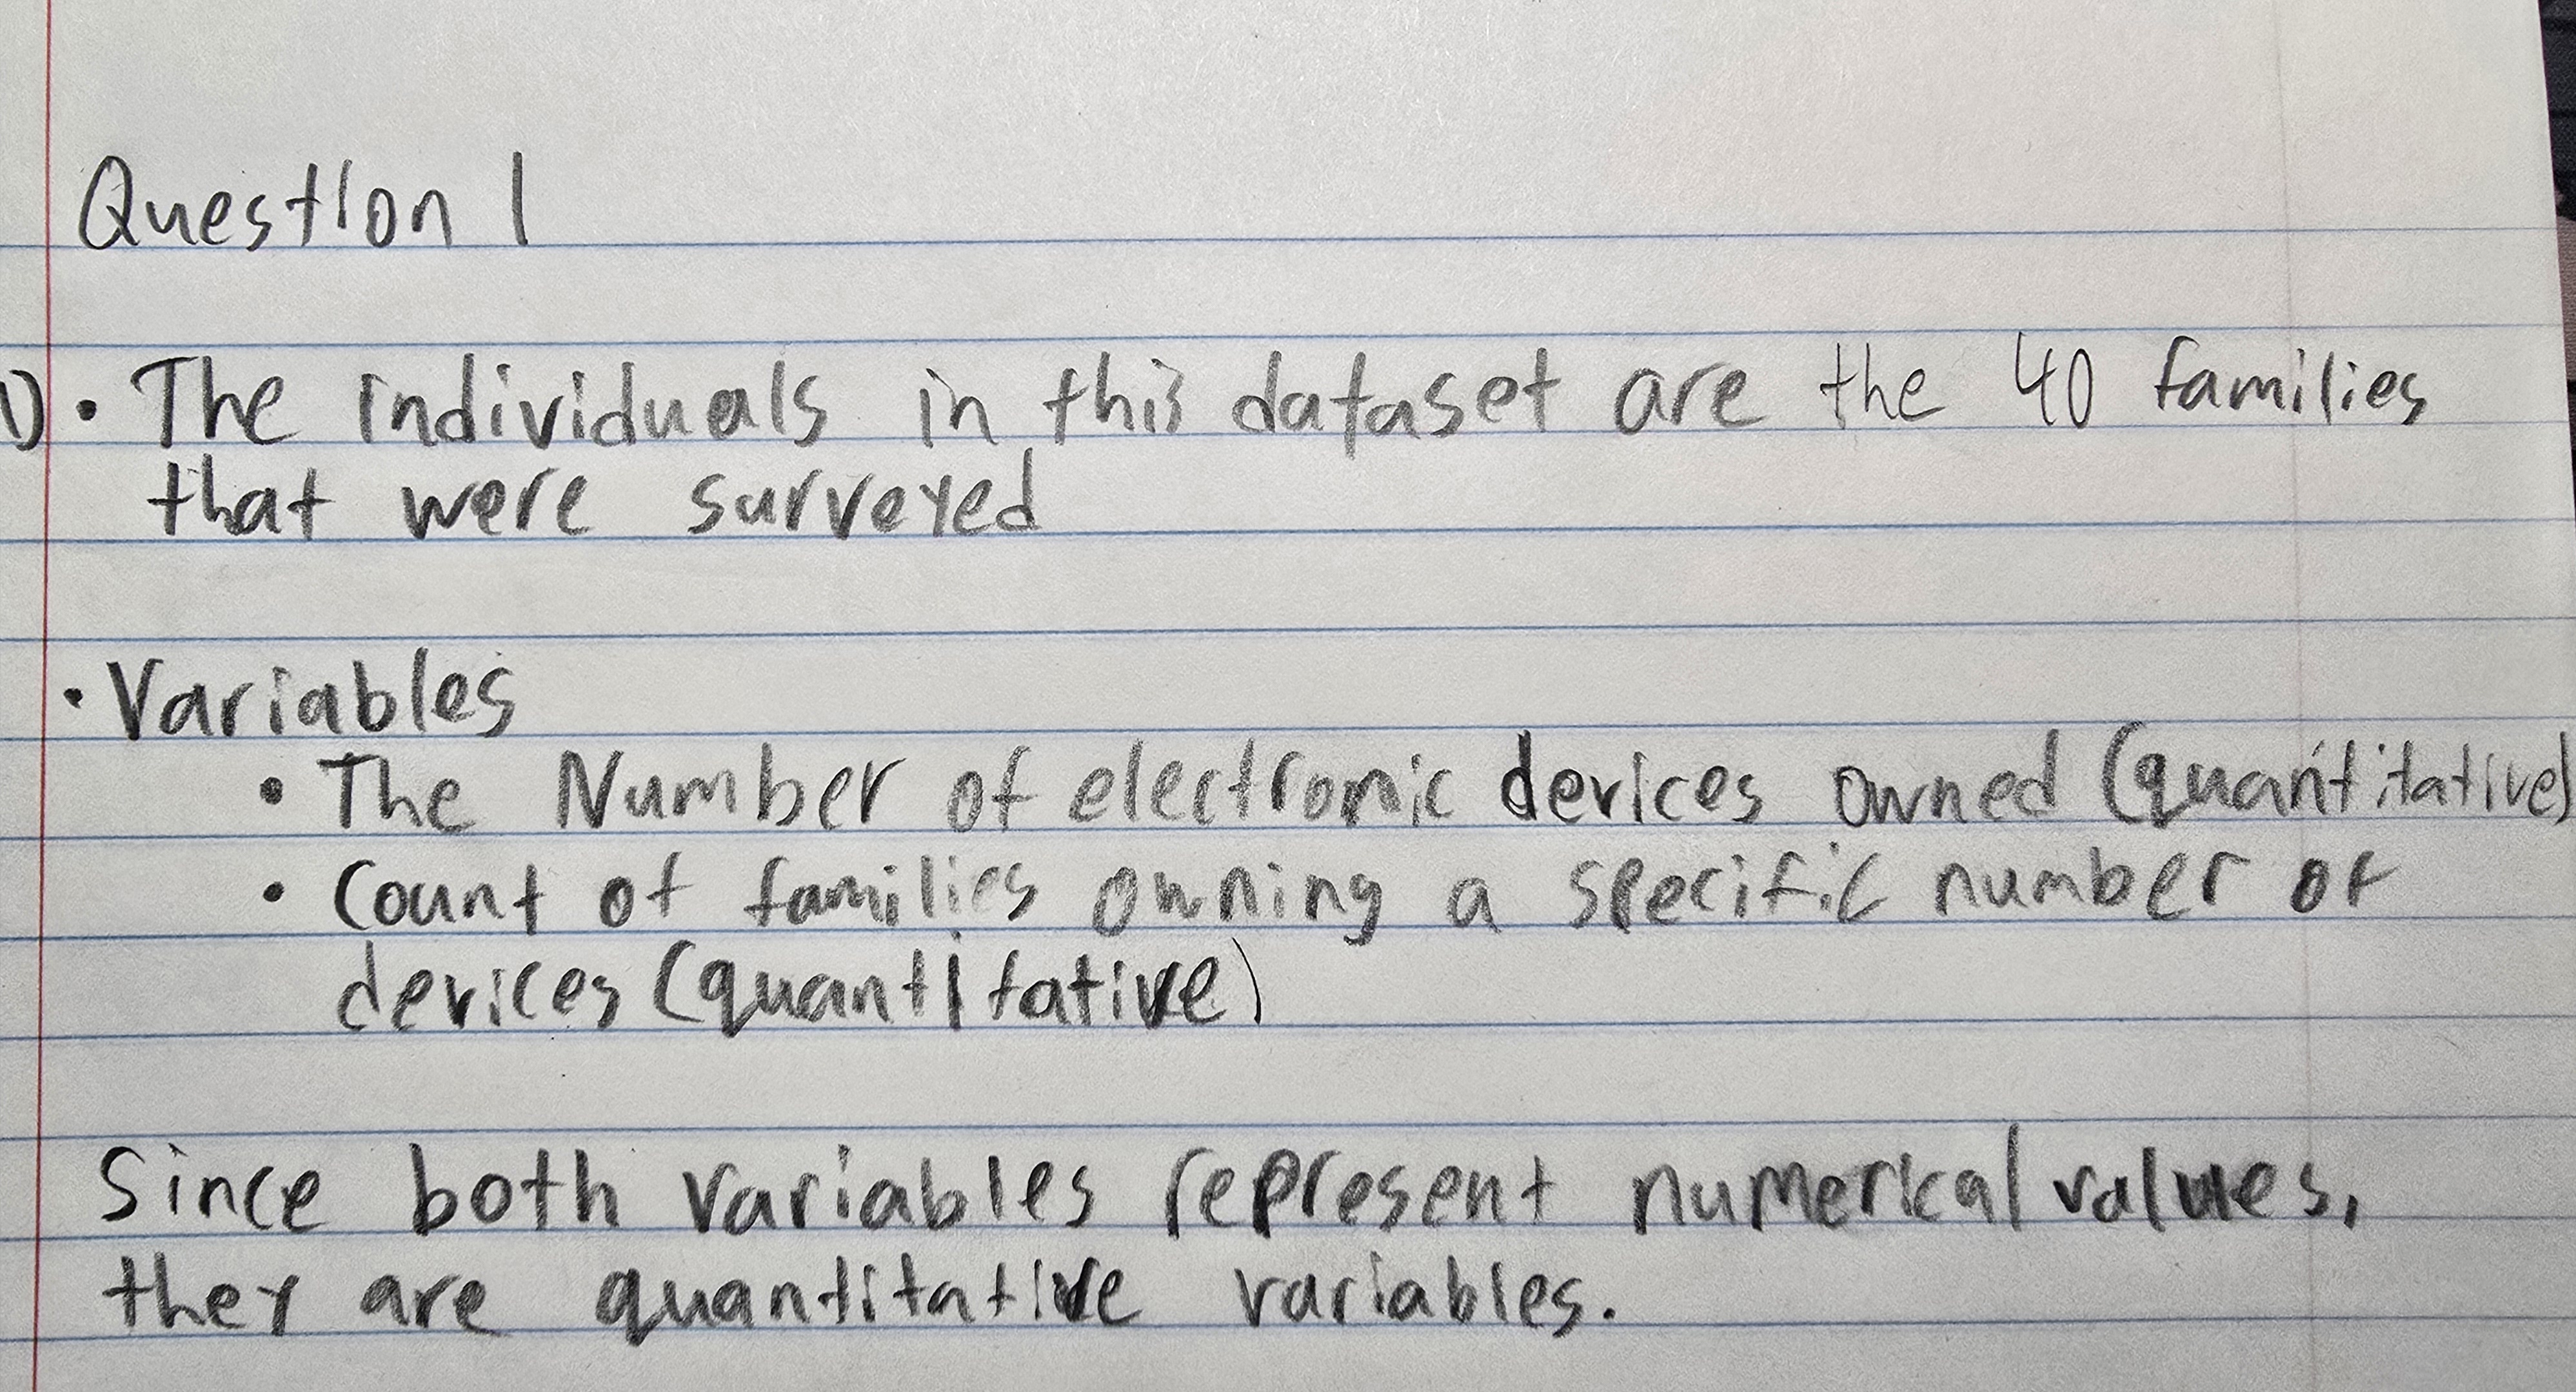 Question 1
1) • The individuals in this dataset are the 40 families
that were surveyed
• Variables
• The Number of electronic devices owned (quantitative)
• Count of families owning a specific number of
devices (quantitative)
Since both variables represent numerical values,
they are quantitative variables.